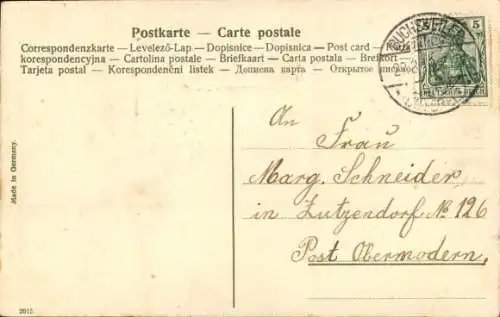 Postkarte — Carte postale
Correspondenzkarte — Levelező-Lap — Dopisnice — Dopisnica — Post card —
korespondencyjna — Cartolina postale — Briefkaart — Carta postala — Brefkort
Tarjeta postal — Korespondenční listek — Дописна карта — Открытое письмо
5
An
Frau
Marg. Schneider
in Zutzendorf No 126
Post Obermodern.
Made in Germany.
2015